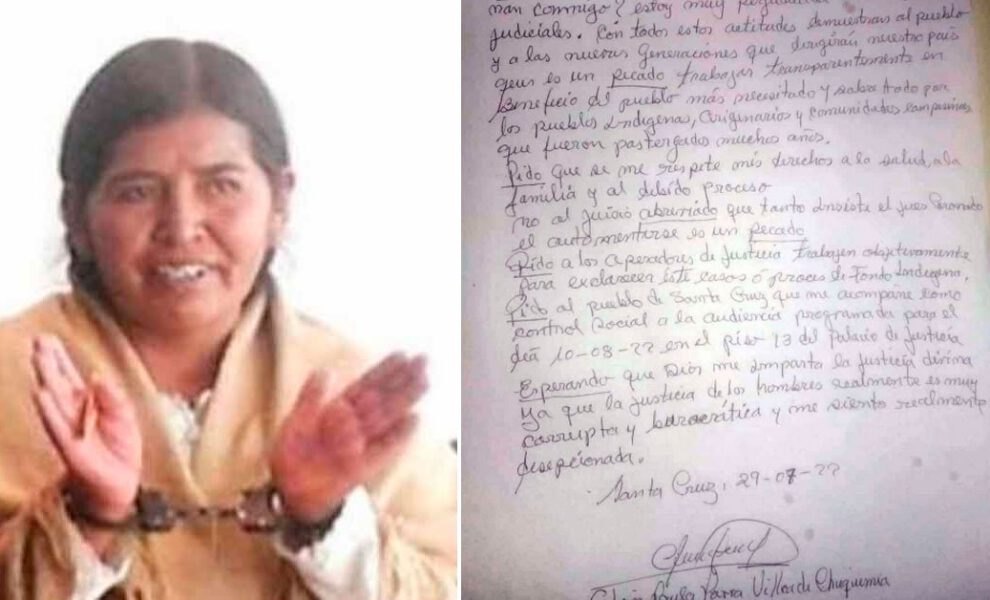 man conmigo? estoy muy
judiciales. Con todos estos actitudes demuestran al pueblo
y a las nuevas generaciones que dirigirán nuestro país
que es un pecado trabajar transparentemente en
Beneficio del pueblo más necesitado y sobre todo por
los pueblos Indigenas, Originarios y comunidades campesinas
que fueron postergados muchos años.
Pido que se me respete mis derechos a la salud, a la
familia y al debido proceso
no al juicio abreviado que tanto insiste el jues
el automentirse es un pecado
Pido a los Operadores de Justicia trabajen objetivamente
para exclarecer éste casos ó proces de Fondo Indigena.
Pido al pueblo de Santa Cruz que me acompañe como
control social a la audiencia programada para el
deá 10-08-22 en el piso 13 del Palacio de Justicia
Esperando que Dios me imparta la justicia divina
Ya que la justicia de los hombres realmente es muy
corrupta y burocrática y me siento realmente
desepcionada.
Santa Cruz, 29-07-22
Parra Villa de Chuquimia